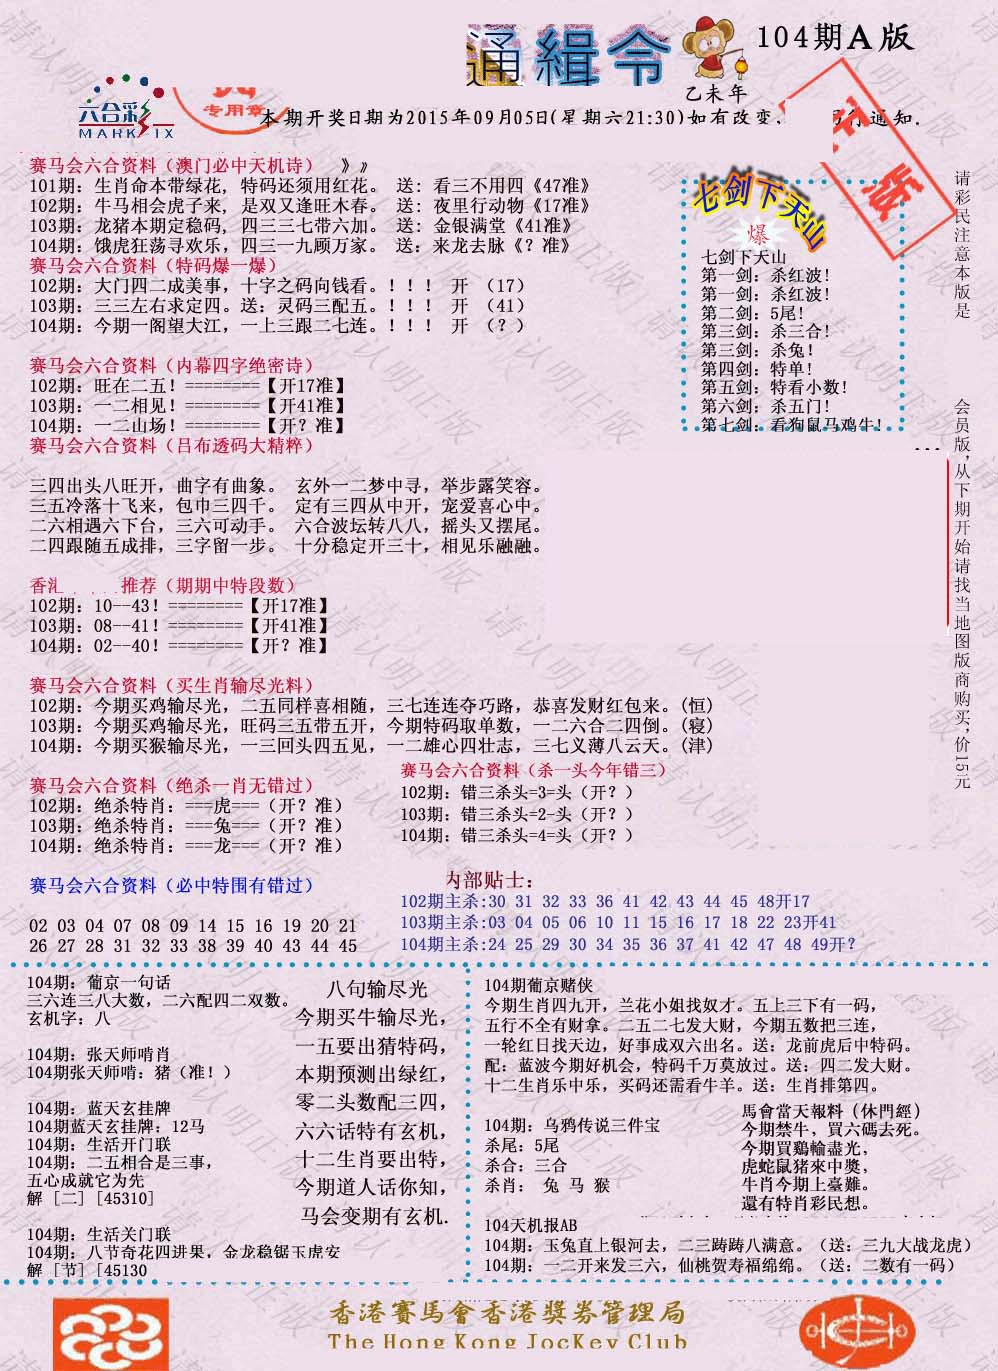 通緝令
104期A版
乙未年
六合彩
MARK SIX
专用章
本期开奖日期为2015年09月05日(星期六21:30)如有改变.
通知.
赛马会六合资料（澳门必中天机诗） 》》
101期：生肖命本带绿花，特码还须用红花。 送：看三不用四《47准》
102期：牛马相会虎子来，是双又逢旺木春。 送：夜里行动物《17准》
103期：龙猪本期定稳码，四三三七带六加。 送：金银满堂《41准》
104期：饿虎狂荡寻欢乐，四三一九顾万家。 送：来龙去脉《？准》
赛马会六合资料（特码爆一爆）
102期：大门四二成美事，十字之码向钱看。！！！ 开 （17）
103期：三三左右求定四。送：灵码三配五。！！！ 开 （41）
104期：今期一阁望大江，一上三跟二七连。！！！ 开 （？）
赛马会六合资料（内幕四字绝密诗）
102期：旺在二五！========【开17准】
103期：一二相见！========【开41准】
104期：一二山场！========【开？准】
赛马会六合资料（吕布透码大精粹）
三四出头八旺开，曲字有曲象。 玄外一二梦中寻，举步露笑容。
三五冷落十飞来，包巾三四千。 定有三四从中开，宠爱喜心中。
二六相遇六下台，三六可动手。 六合波坛转八八，摇头又摆尾。
二四跟随五成排，三字留一步。 十分稳定开三十，相见乐融融。
推荐（期期中特段数）
102期：10--43！========【开17准】
103期：08--41！========【开41准】
104期：02--40！========【开？准】
赛马会六合资料（买生肖输尽光料）
102期：今期买鸡输尽光，二五同样喜相随，三七连连夺巧路，恭喜发财红包来。(恒)
103期：今期买鸡输尽光，旺码三五带五开，今期特码取单数，一二六合二四倒。(寝)
104期：今期买猴输尽光，一三回头四五见，一二雄心四壮志，三七义薄八云天。(津)
赛马会六合资料（绝杀一肖无错过）
102期：绝杀特肖：===虎===（开？准）
103期：绝杀特肖：===兔===（开？准）
104期：绝杀特肖：===龙===（开？准）
赛马会六合资料（杀一头今年错三）
102期：错三杀头=3=头（开？）
103期：错三杀头=2-头（开？）
104期：错三杀头=4=头（开？）
赛马会六合资料（必中特围有错过）
02 03 04 07 08 09 14 15 16 19 20 21
26 27 28 31 32 33 38 39 40 43 44 45
内部贴士：
102期主杀:30 31 32 33 36 41 42 43 44 45 48开17
103期主杀:03 04 05 06 10 11 15 16 17 18 22 23开41
104期主杀:24 25 29 30 34 35 36 37 41 42 47 48 49开？
七剑下天山
爆
七剑下天山
第一剑：杀红波！
第一剑：杀红波！
第二剑：5尾！
第三剑：杀三合！
第三剑：杀兔！
第四剑：特单！
第五剑：特看小数！
第六剑：杀五门！
第七剑：看狗鼠马鸡牛！
请彩民注意本版是
会员版，从下期开始请找当地图版商购买，价15元
104期：葡京一句话
三六连三八大数，二六配四二双数。
玄机字：八
104期：张天师啃肖
104期张天师啃：猪（准！）
104期：蓝天玄挂牌
104期蓝天玄挂牌：12马
104期：生活开门联
104期：二五相合是三事，
五心成就它为先
解 [二] [45310]
104期：生活关门联
104期：八节奇花四进果，金龙稳锯玉虎安
解 [节] [45130
八句输尽光
今期买牛输尽光，
一五要出猜特码，
本期预测出绿红，
零二头数配三四，
六六话特有玄机，
十二生肖要出特，
今期道人话你知，
马会变期有玄机.
104期葡京赌侠
今期生肖四九开，兰花小姐找奴才。五上三下有一码，
五行不全有财拿。二五二七发大财，今期五数把三连，
一轮红日找天边，好事成双六出名。送：龙前虎后中特码。
配：蓝波今期好机会，特码千万莫放过。送：四二发大财。
十二生肖乐中乐，买码还需看牛羊。送：生肖排第四。
104期：乌鸦传说三件宝
杀尾：5尾
杀合：三合
杀肖： 兔 马 猴
馬會當天報料（休門經）
今期禁牛，買六碼去死。
今期買鷄輸盡光，
虎蛇鼠猪來中獎，
牛肖今期上臺難。
還有特肖彩民想。
104天机报AB
104期：玉兔直上银河去，二三踌踌八满意。（送：三九大战龙虎）
104期：一二开来发三六，仙桃贺寿福绵绵。（送：二数有一码）
香港賽馬會香港獎券管理局
The Hong Kong JocKey Club